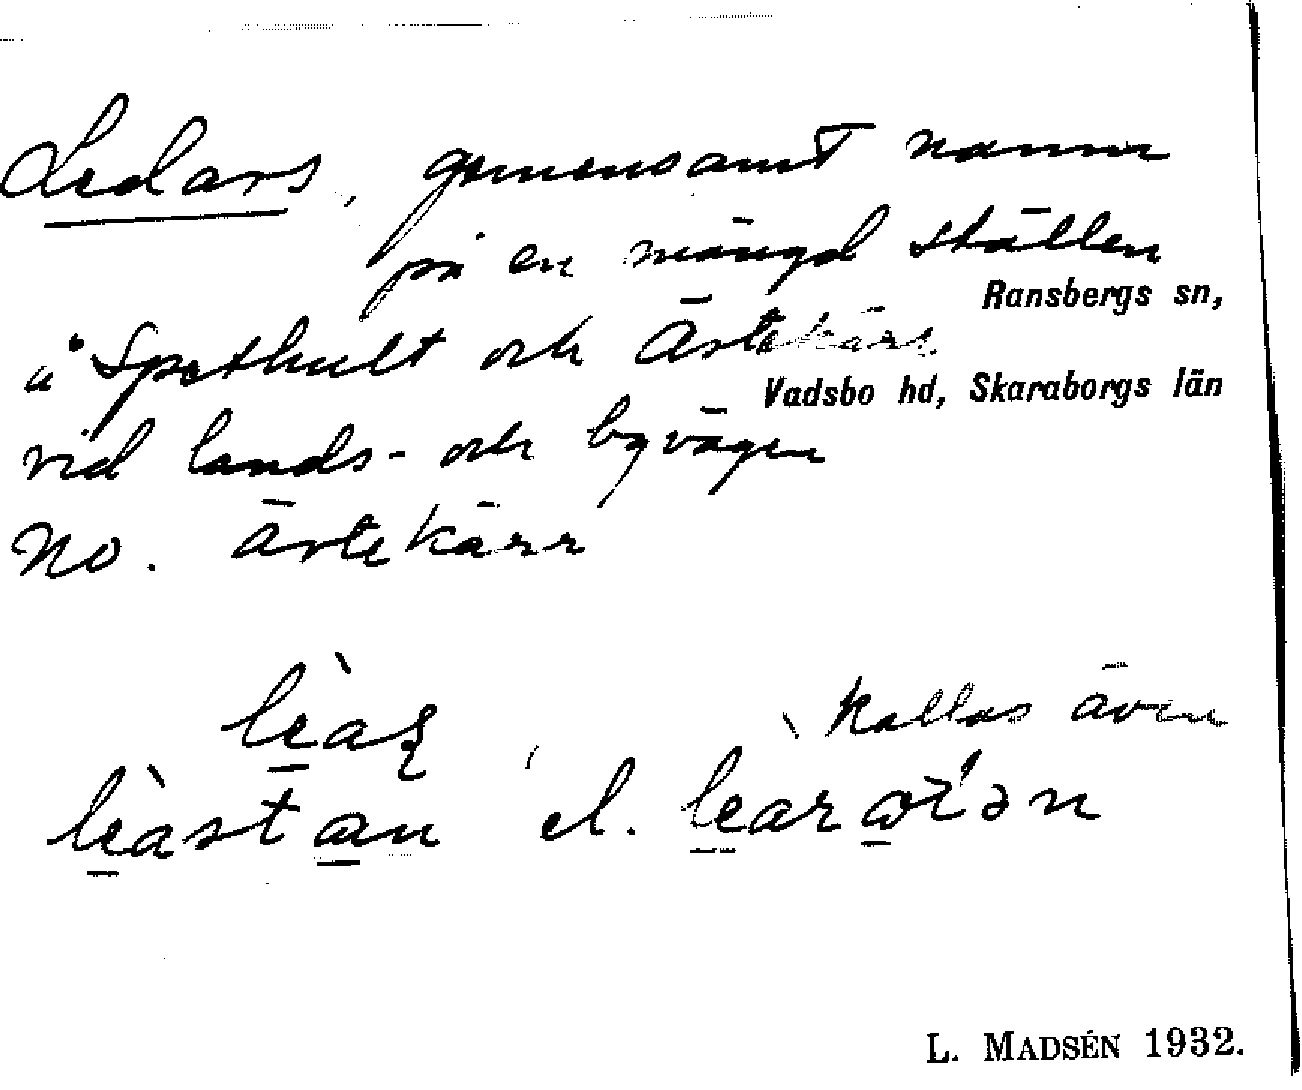 Ledars, gemensamt namn
på en mängd ställen
Ransbergs sn,
å Spethult och Ärtekärr
Vadsbo hd, Skaraborgs län
vid lands- och byvägen
NO. Ärtekärr
kallas även
el.
L. MADSÉN 1932.